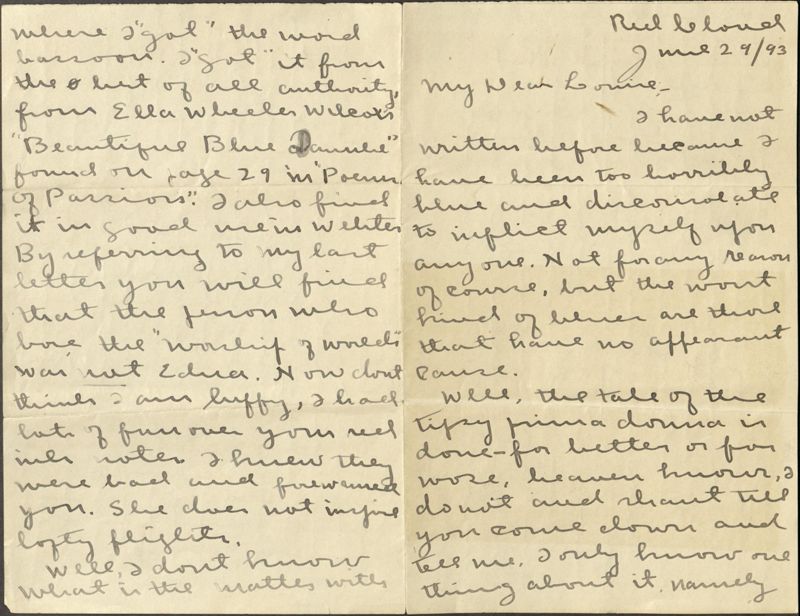 Red Cloud
June 29/93
My Dear Louise,
I have not
written before because I
have been too horribly
blue and disconsolate
to inflict myself upon
any one. Not for any reason
of course, but the worst
kind of blues are those
that have no appearant
cause.
Well, the tale of the
tipsy prima donna is
done - for better or for
wose, heaven knows, I
do not and shant till
you come down and
tell me. I only know one
thing about it, namely
where I "got" the word
bassoon. I "got" it from
the best of all authority,
from Ella Wheeler Wilcox's
"Beautiful Blue Danube"
found on page 29 in "Poems
of Passion". I also find
it in good use in Webster
By referring to my last
letter you will find
that the person who
bore the "worship of worlds"
was not Edna. Now dont
think I am huffy, I had
lots of fun over your red
ink notes I knew they
were bad and forewarned
you. She does not inspire
lofty flights.
Well, I dont know
what is the matter with